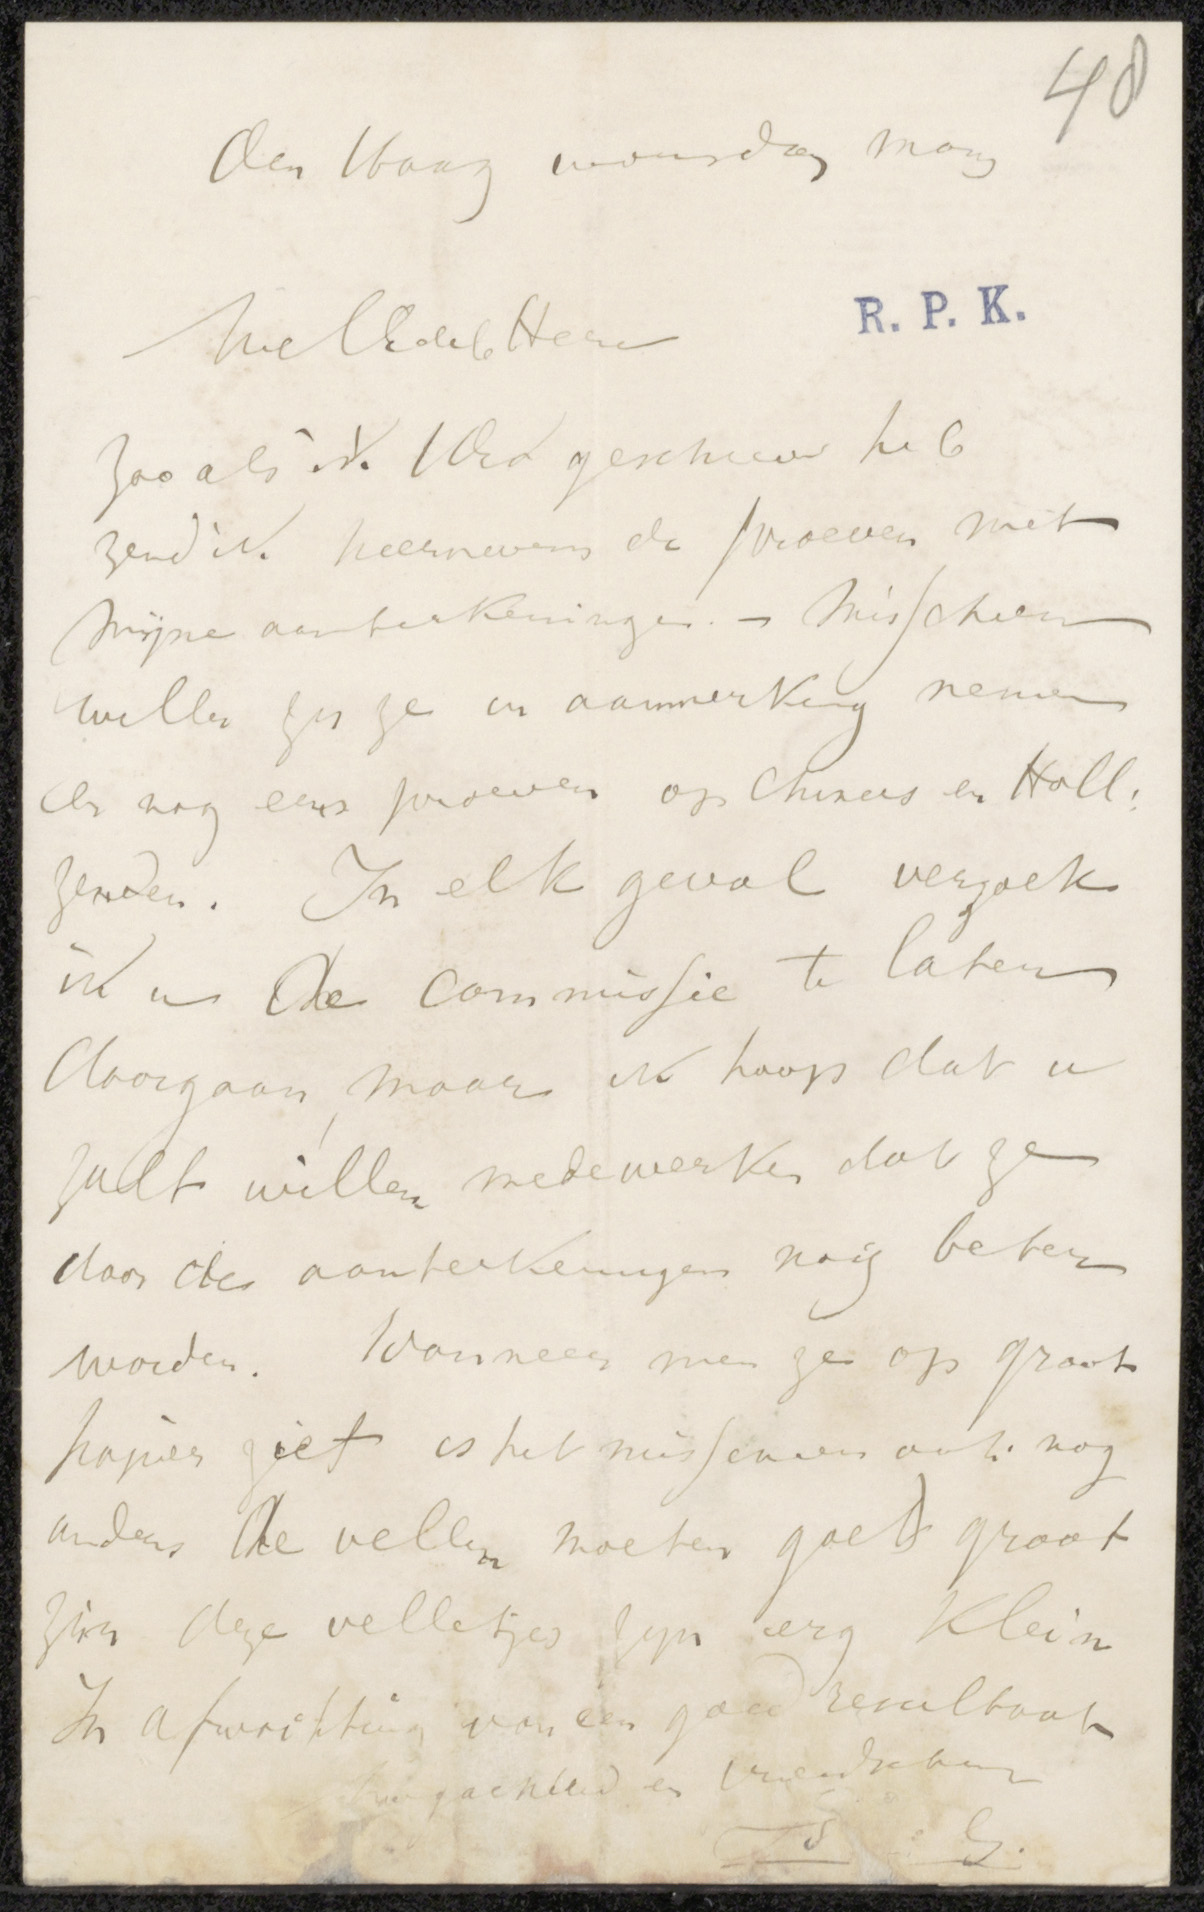 48
Den Haag woensdag morg
R. P. K.
WelEdele Heer
Zoo als ik UEd geschreven heb
zend ik hiernevens de proeven met
mijne aanteekeningen. – Misschien
willen zij ze in aanmerking nemen
en nog eens proeven op Chinees en Holl:
zenden. In elk geval verzoek
ik u de commissie te laten
doorgaan, maar ik hoop dat u
zult willen medewerken dat ze
door de aanteekeningen nog beter
worden. Wanneer men ze op groot
papier ziet is het misschien ook nog
anders De vellen moeten goed groot
zijn deze velletjes zijn erg klein
In afwachting van een goed resultaat
Hoogachtend en vriendschap